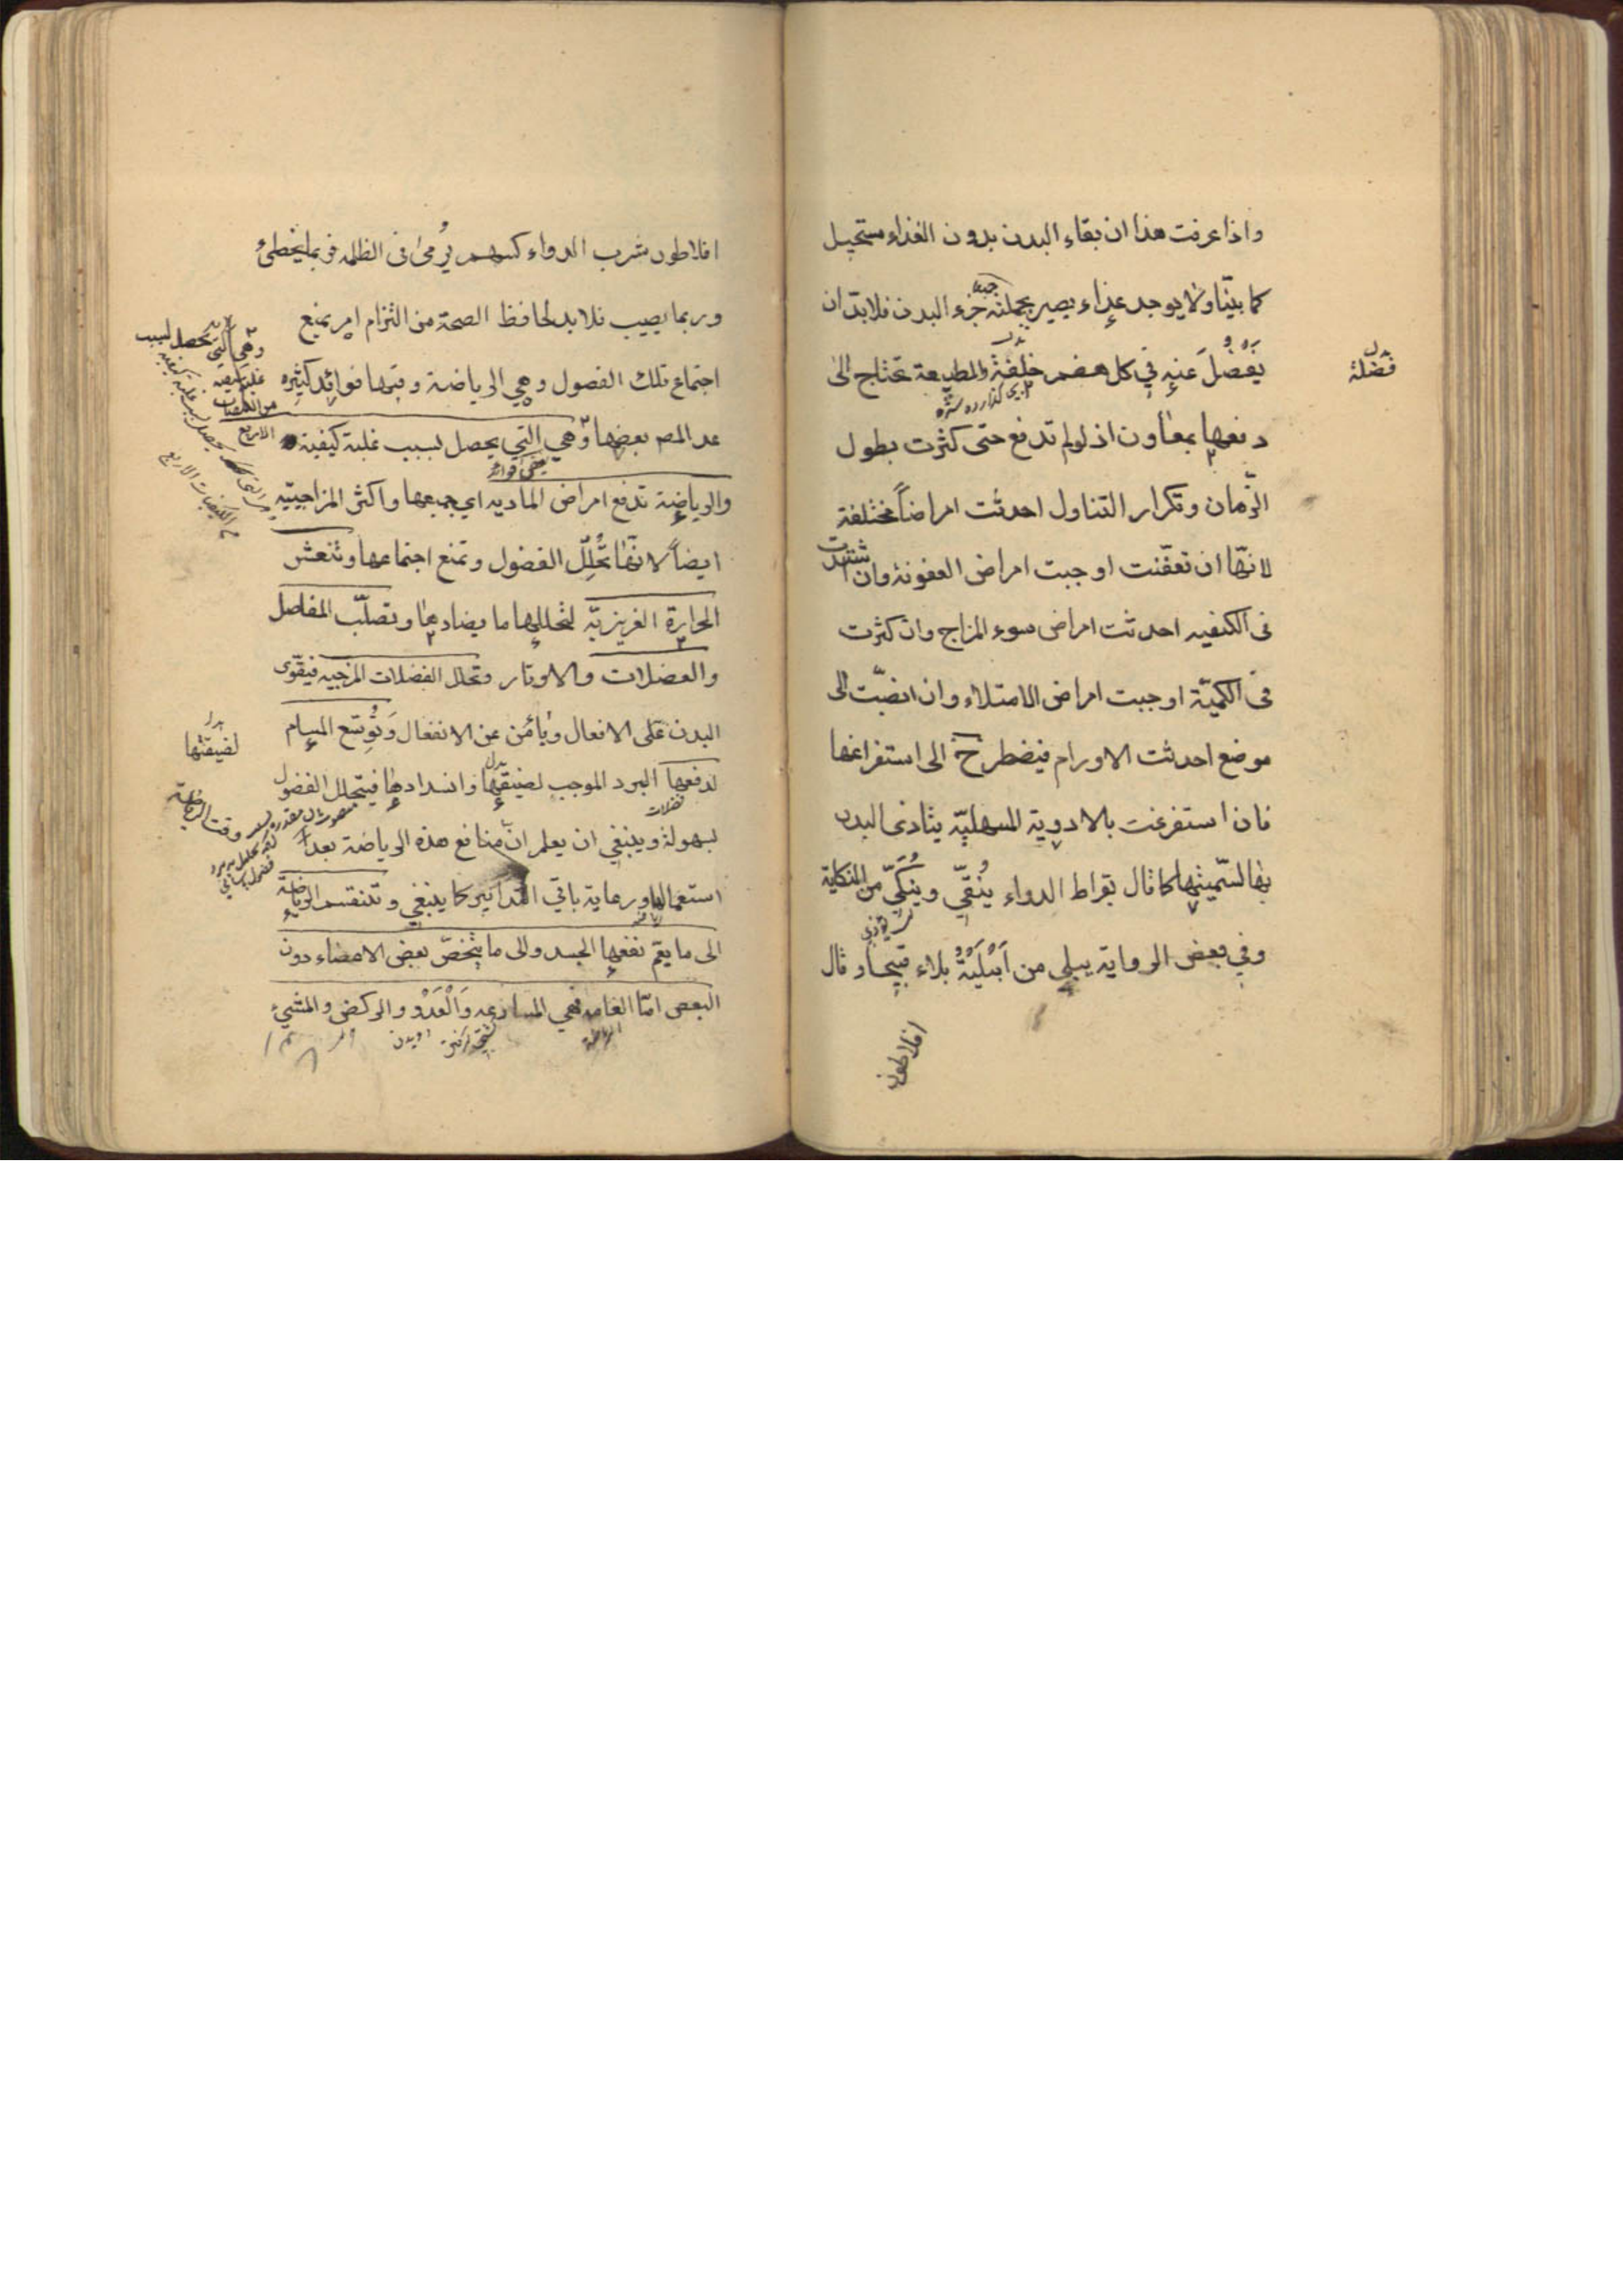 واذا عرفت هذا ان بقاء البدن بدون الغذاء مستحيل
كما بيّنا ولا يوجد غذاء يصير بجملته جزء البدن فلا بدّ ان
يَفضُلَ عنه في كل هضم خلفة والطبيعة تحتاج الى
دفعها بمعاون اذ لو لم تدفع حتى كثرت بطول
الزّمان وتكرار التناول احدثت امراضاً مختلفة
لانّها ان تعفّنت اوجبت امراض العفونة وان اشتدت
فى الكيفيه احدثت امراض سوء المزاج وان كثرت
فى الكميّة اوجبت امراض الامتلاء وان انصبّت الى
موضع احدثت الاورام فيضطر ح الى استفراغها
فان استفرغت بالادوية المسهليّه يتاذى البدن
بها لسّميتها كما قال بقراط الدواء يُنقّي ويُنكّي من النكاية
وفي بعض الرواية يبلي من اَبْلَيْتُهُ بلاء قبيحا وقال
افلاطون
فضلة
افلاطون شرب الدواء كسهم يُرمىٰ فى الظلمه فربما يخطئ
وربما يصيب فلا بد لحافظ الصحة من التزام امر يمنع
اجتماع تلك الفصول وهي الرياضة وفيها فوائد كثيره
عد المص بعضها وهي التي يحصل بسبب غلبة كيفية
والرياضة تدفع امراض الماديه اي جميعها واكثر المزاجيّه
ايضاً لانّها تُحلِّل الفضول وتمنع اجتماعها وتنعش
الحرارة الغريزيّه لتحليلها ما يضادها وتصلّب المفاصل
والعضلات والاوتار وتحلل الفضلات المرخيه فيقوّى
البدن على الافعال ويأمن عن الانفعال وَتُوسّع المسام
لدفعها البرد الموجب لضيقها وانسدادها فيتحلل الفضول
بسهولة وينبغي ان يعلم ان منافع هذه الرياضة بعد
استعمالها ورعاية باقي التدابير كما ينبغي وتنقسم الرياضة
الى ما يعمّ نفعها الجسد والى ما يختصّ بعض الاعضاء دون
البعض امّا العامه فهي المسارعه وَالْعَدْو والركض والمشيء
وهي التي تحصل بسبب
غلبة كيفية
من الكيفيات
الاربع
بدل
لضيقتها